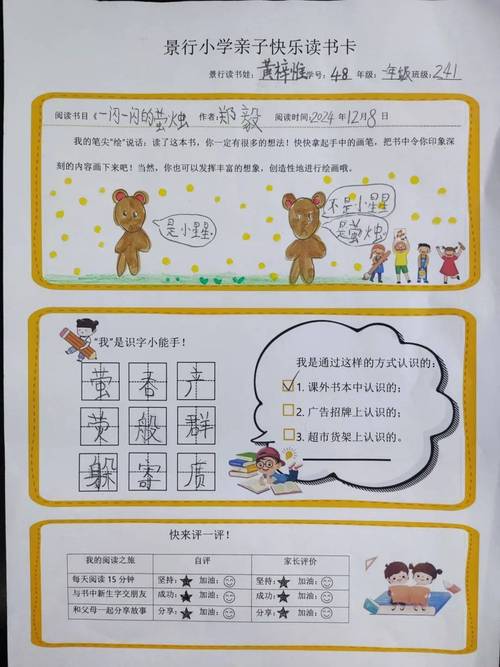 景行小学亲子快乐读书卡
景行读书娃:黄梓惟学号:48年级:一年级班级:241
阅读书目《一闪一闪的萤烛 作者:郑毅 阅读时间:2024年12月8日
我的笔尖“绘”说话:读了这本书,你一定有很多的想法!快快拿起手中的画笔,把书中令你印象深
刻的内容画下来吧!当然,你也可以发挥丰富的想象,创造性地进行绘画哦。
是小星星。
不是小星星
是萤烛
“我”是识字小能手!
萤 春 产
荧 般 群
躲 寄 质
我是通过这样的方式认识的:
1. 课外书本中认识的;
2. 广告招牌上认识的;
3. 超市货架上认识的。
快来评一评!
我的阅读之旅 自评 家长评价
每天阅读 15 分钟 坚持: 加油: 坚持: 加油:
与书中新生字交朋友 成功: 加油: 成功: 加油:
和父母一起分享故事 分享: 加油: 分享: 加油: